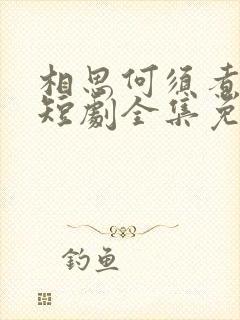 相思何须煮
短劇全集免
钓鱼